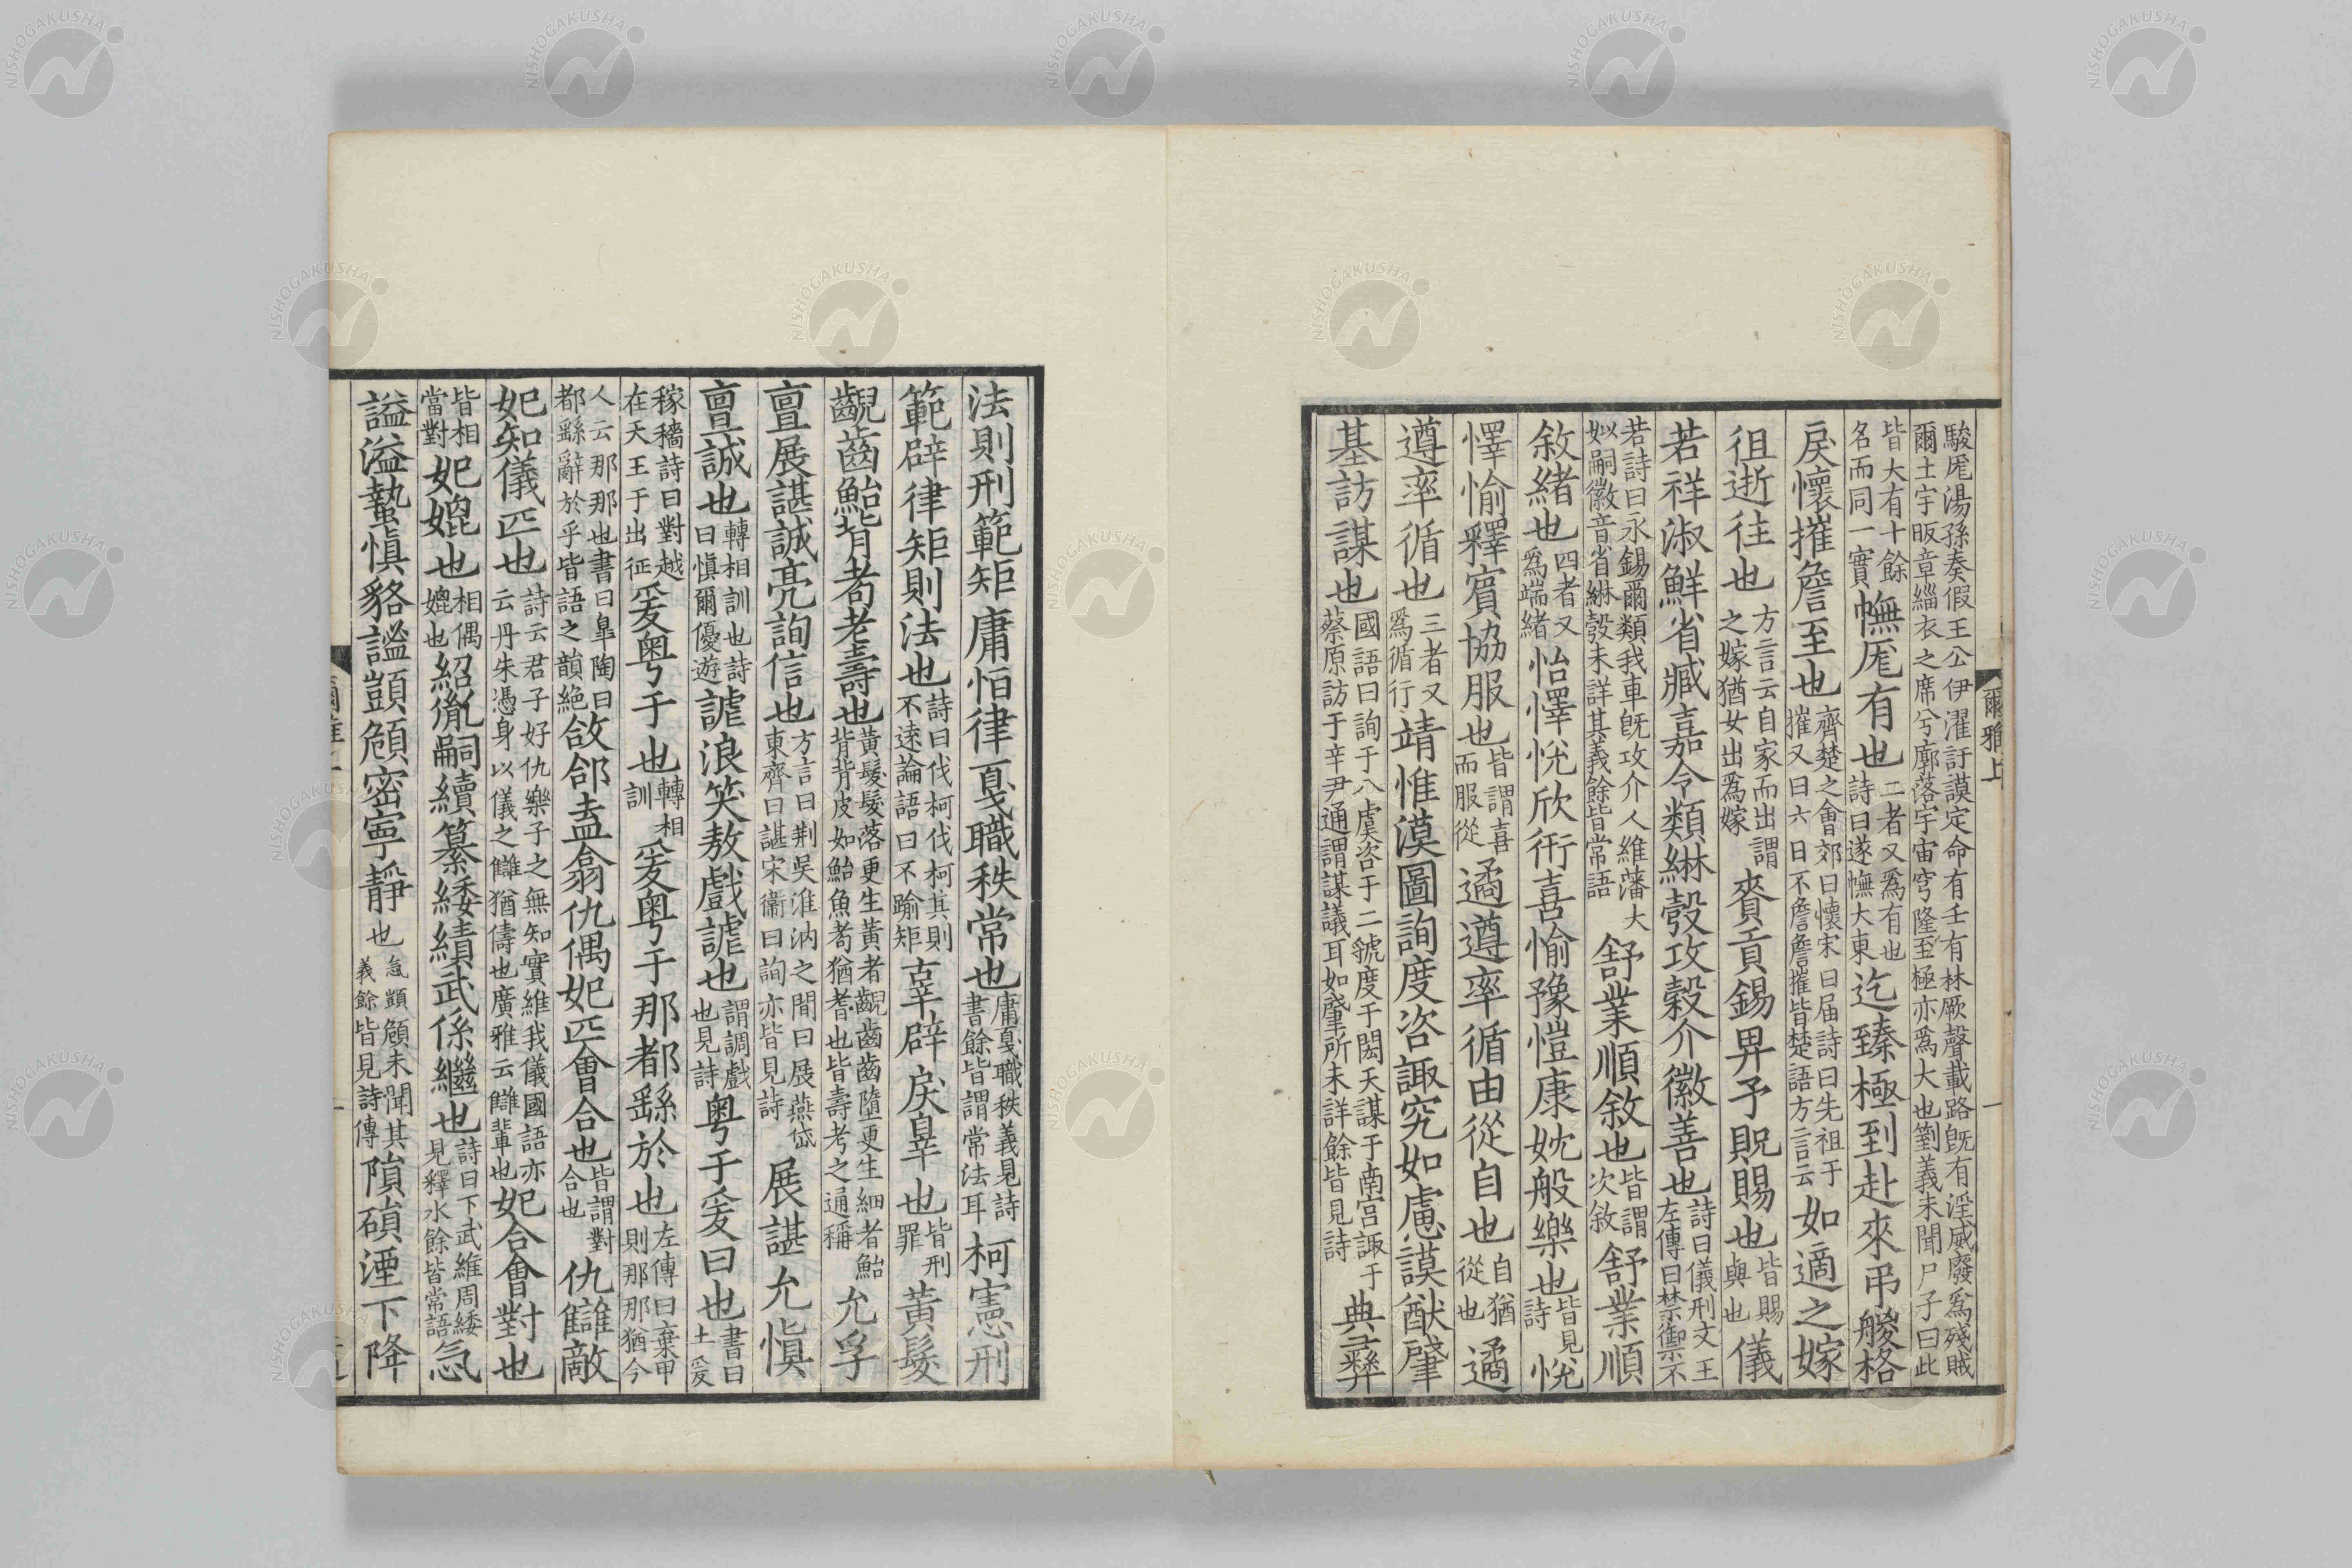 駿厖湯孫奏假王公伊濯訏謨定命有壬有林厥聲載路旣有淫威廢爲殘賊
爾土宇昄章緇衣之席兮廓落宇宙穹隆至極亦爲大也箌義未聞尸子曰此
皆大有十餘
名而同一實
幠厖有也
二者又爲有也
詩曰遂幠大東
迄臻極到赴來弔艐格
戾懷摧詹至也
齊楚之會郊曰懷宋曰届詩曰先祖于
摧又曰六日不詹詹摧皆楚語方言云
如適之嫁
徂逝往也
方言云自家而出謂
之嫁猶女出爲嫁
賚貢錫畀予貺賜也
皆賜
與也
儀
若祥淑鮮省臧嘉令類綝彀攻穀介徽善也
詩曰儀刑文王
左傳曰禁禦不
若詩曰永錫爾類我車旣攻介人維藩大
姒嗣徽音省綝彀未詳其義餘皆常語
舒業順敘也
皆謂
次敘
舒業順
敘緒也
四者又
爲端緒
怡懌悅欣衎喜愉豫愷康妉般樂也
皆見
詩
悅
懌愉釋賓協服也
皆謂喜
而服從
遹遵率循由從自也
自猶
從也
遹
遵率循也
三者又
爲循行
靖惟漠圖詢度咨諏究如慮謨猷肇
基訪謀也
國語曰詢于八虞咨于二虢度于閎夭謀于南宫諏于
蔡原訪于辛尹通謂謀議耳如肇所未詳餘皆見詩
典彝
爾雅上
一
法則刑範矩庸恒律戛職秩常也
庸戛職秩義見詩
書餘皆謂常法耳
柯憲刑
範辟律矩則法也
詩曰伐柯伐柯其則
不遠論語曰不踰矩
辜辟戾辠也
皆刑
罪
黃髮
齯齒鮐背耇老壽也
黃髮髮落更生黃者齯齒齒墮更生細者鮐
背背皮如鮐魚耇猶耆也皆壽考之通稱
允孚
亶展諶誠亮詢信也
方言曰荆吳淮汭之間曰展燕岱
東齊曰諶宋衞曰詢亦皆見詩
展諶允愼
亶誠也
轉相訓也詩
曰愼爾優遊
謔浪笑敖戲謔也
謂調戲
也見詩
粤于爰曰也
書曰
土爰
稼穡詩曰對越
在天王于出征
爰粤于也
轉相
訓
爰粤于那都繇於也
左傳曰棄甲
則那那猶今
人云那那也書曰臯陶曰
都繇辭於乎皆語之韻絶
敆郃盍翕仇偶妃匹會合也
皆謂對
合也
仇讎敵
妃知儀匹也
詩云君子好仇樂子之無知實維我儀國語亦
云丹朱憑身以儀之讎猶儔也廣雅云讎輩也
妃合會對也
皆相
當對
妃媲也
相偶
媲也
紹胤嗣續纂緌績武係繼也
詩曰下武維周緌
見釋水餘皆常語
忥
謚溢蟄愼貉謐顗頠密寧靜也
忥顗頠未聞其
義餘皆見詩傳
隕磒湮下降